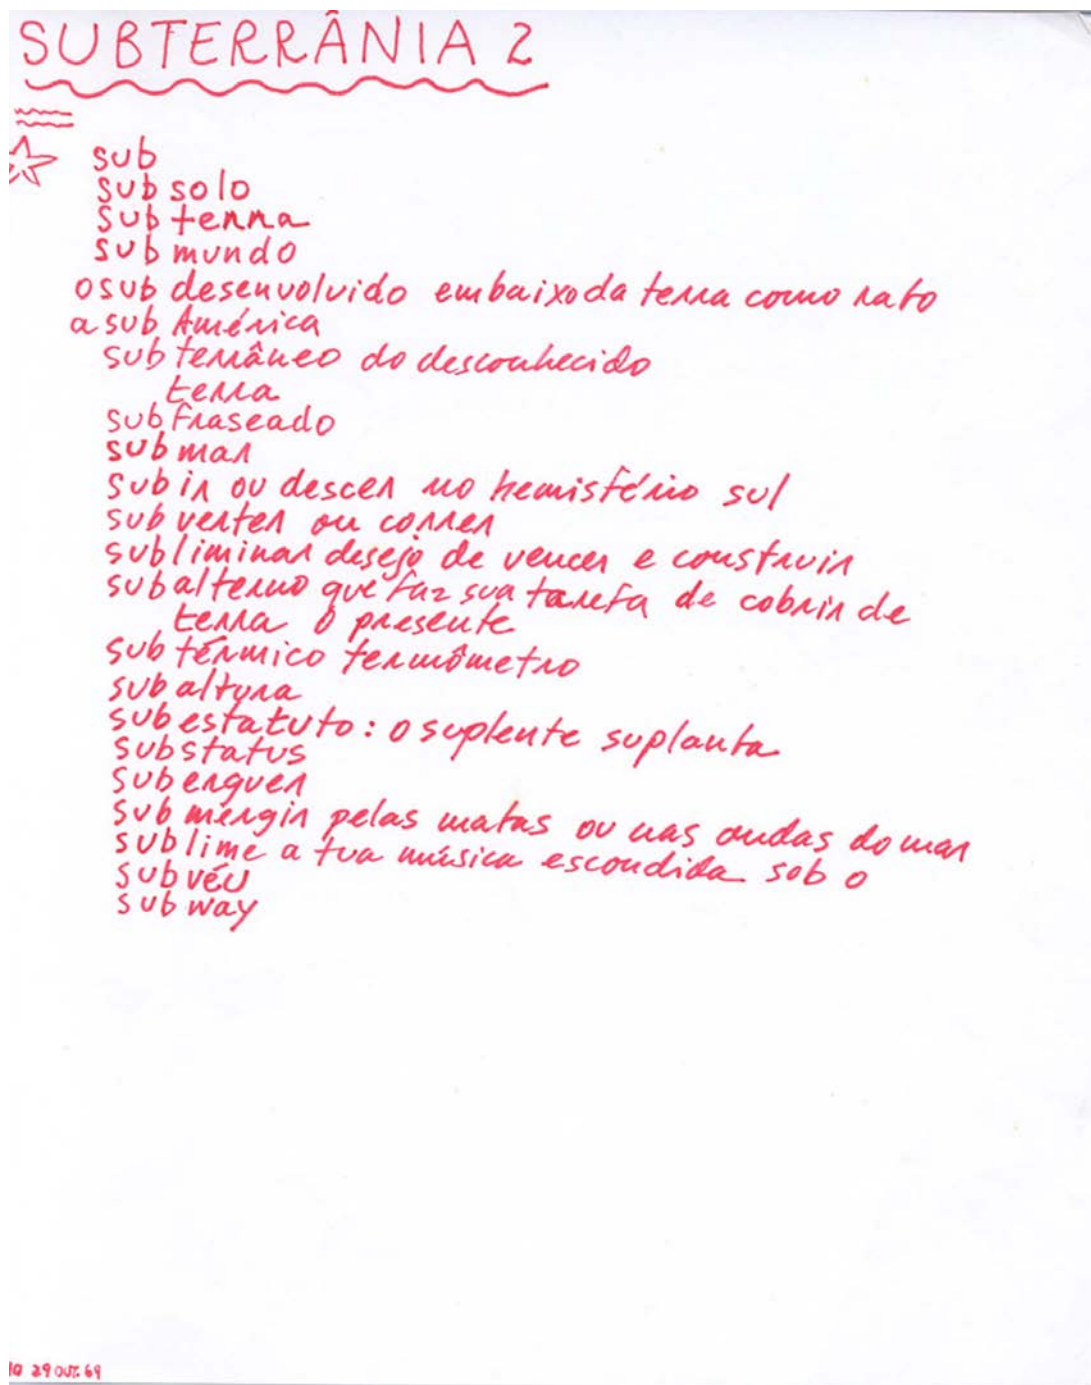 SUBTERRÂNIA 2
sub
sub solo
sub terra
sub mundo
o sub desenvolvido embaixo da terra como rato
a sub América
sub terrâneo do desconhecido
terra
sub fraseado
sub mar
sub ir ou descer no hemisfério sul
sub verter ou correr
sub liminar desejo de vencer e construir
sub alterno que faz sua tarefa de cobrir de
terra o presente
sub térmico termômetro
sub altura
sub estatuto: o suplente suplanta
sub status
sub erguer
sub mérgir pelas matas ou nas ondas do mar
sub lime a tua música escondida sob o
sub véu
sub way
29 OUT. 69